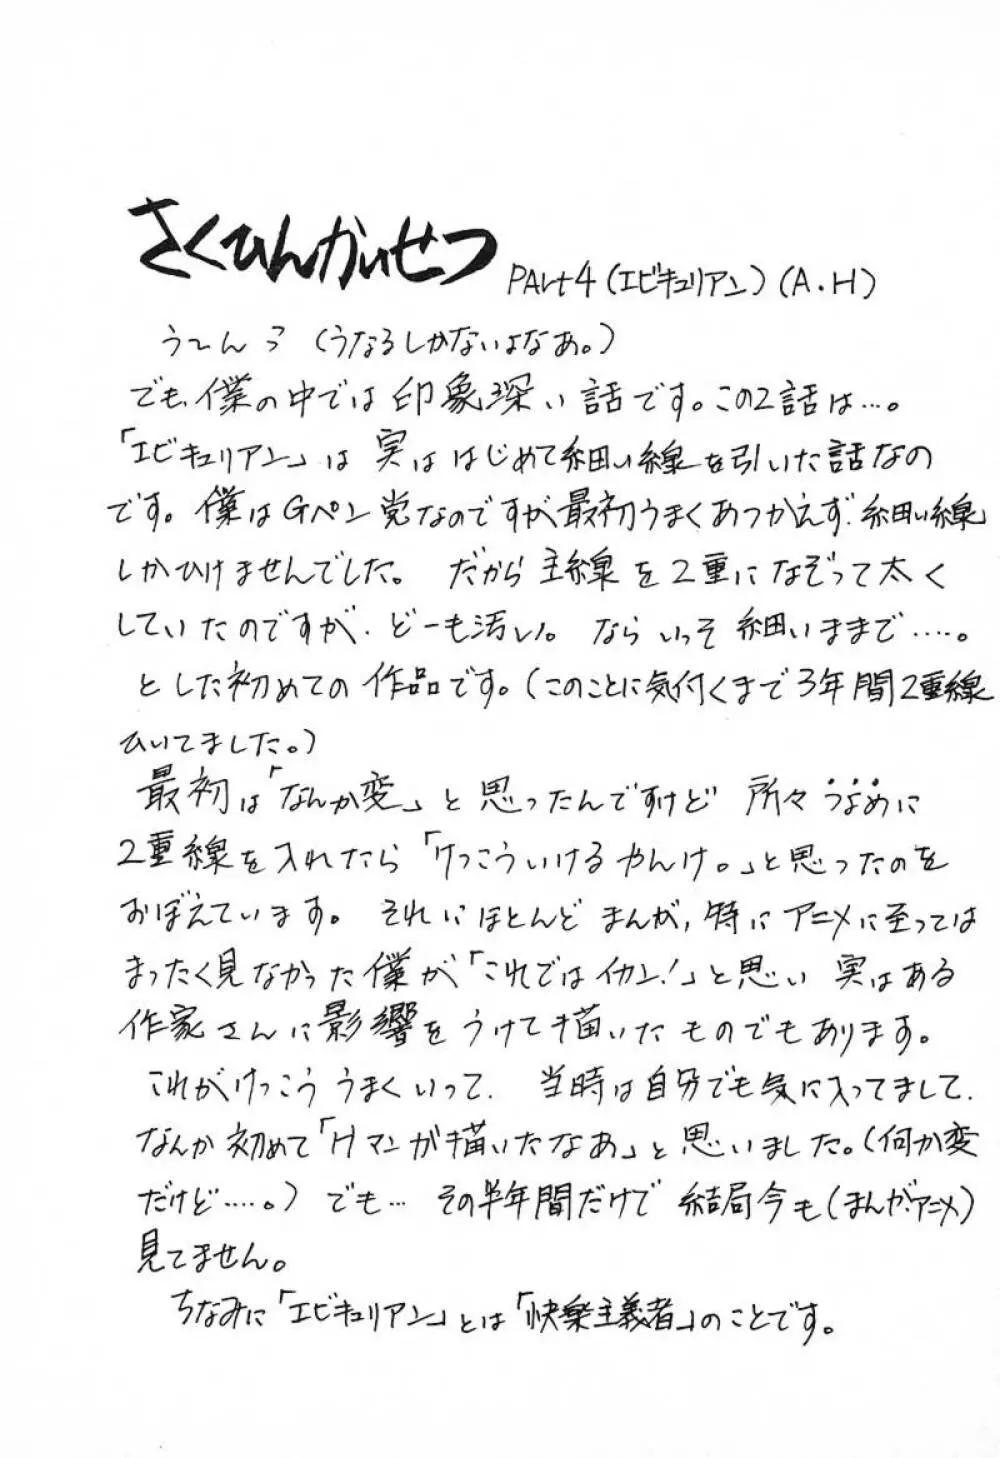 さくひんかいせつ PArt4(エピキュリアン)(A.H)
う〜んっ(うなるしかないよなあ。)
でも、僕の中では印象深い話です。この2話は…。
「エピキュリアン」は実ははじめて細い線を引いた話なの
です。僕はGペン党なのですが最初うまくあつかえず、細い線
しかひけませんでした。だから主線を2重になぞって太く
していたのですが、どーも汚い。ならいっそ細いままで……。
とした初めての作品です。(このことに気付くまで3年間2重線
ひいてました。)
最初は「なんか変」と思ったんですけど所々うすめに
2重線を入れたら「けっこういけるやんけ。」と思ったのを
おぼえています。それにほとんどまんが,特にアニメに至っては
まったく見なかった僕が「これではイカン!」と思い実はある
作家さんに影響をうけて描いたものでもあります。
これがけっこううまくいって、当時は自分でも気に入ってまして、
なんか初めて「Hマンガ描いたなあ」と思いました。(何か変
だけど……。)でも…その半年間だけで結局今も(まんが・アニメ)
見てません。
ちなみに「エピキュリアン」とは「快楽主義者」のことです。